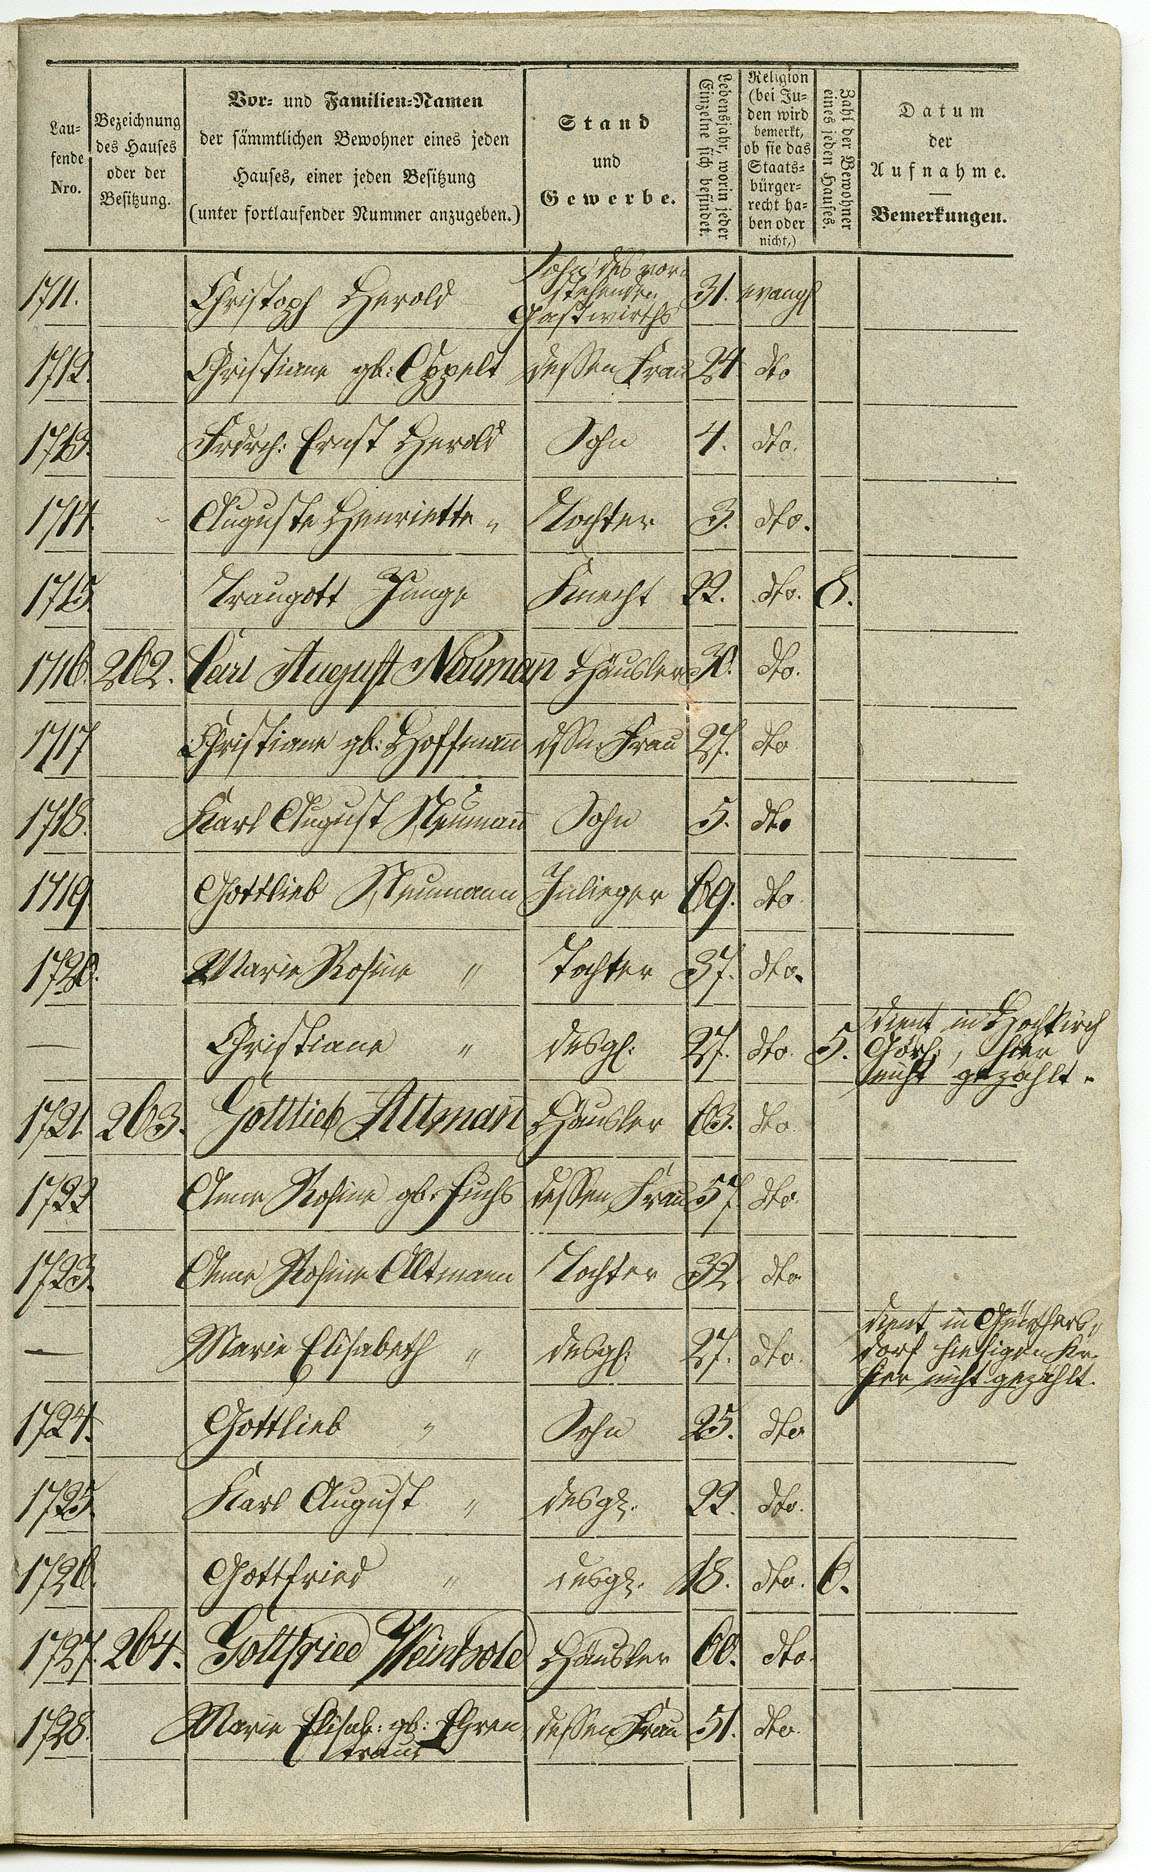 Laufende Nro.
Bezeichnung des Hauses oder der Besitzung.
Vor- und Familien-Namen
der sämmtlichen Bewohner eines jeden
Hauses, einer jeden Besitzung
(unter fortlaufender Nummer anzugeben.)
Stand
und
Gewerbe.
Lebensjahr, worin jeder Einzelne sich befindet.
Religion (bei Juden wird bemerkt, ob sie das Staatsbürgerrecht haben oder nicht,)
Zahl der Bewohner eines jeden Hauses.
Datum
der
Aufnahme.
Bemerkungen.
1711. Christoph Herold Sohn des vorstehenden Gastwirths 31. evangl
1712. Christiane gb: Oppelt dessen Frau 24 dto
1713. Frdrch: Ernst Herold Sohn 4. dto.
1714. Auguste Henriette " Tochter 3. dto.
1715. Traugott Junge Knecht 22. dto. 8.
1716. 262. Carl August Neuman̅ Häusler 30. dto.
1717 Christiane gb: Hoffman̅ dssn Frau 27. dto
1718. Karl August Neuman̅ Sohn 5. dto
1719 Gottlieb Neumann Inlieger 69. dto
1720. Marie Rosine " Tochter 37. dto.
— Christiane " desgl. 27. dto. 5. dient in Hochkirch Görl:, hier nicht gezählt.
1721. 263. Gottlieb Altman̅ Häusler 63. dto.
1722 Anne Rosine gb. Fuchs dessen Frau 57 dto
1723. Anne Rosine Altmann Tochter 32 dto
— Marie Elisabeth " desgl. 27. dto. dient in Günthersdorf hiesigen Kr. hier nicht gezählt.
1724. Gottlieb " Sohn 25. dto
1725. Karl August " desgl. 22. dto.
1726. Gottfried " desgl. 18. dto. 6.
1727. 264. Gottfried Weinhold Häusler 60. dto.
1728. Marie Elisab: gb: Ehrentraut dessen Frau 51. dto